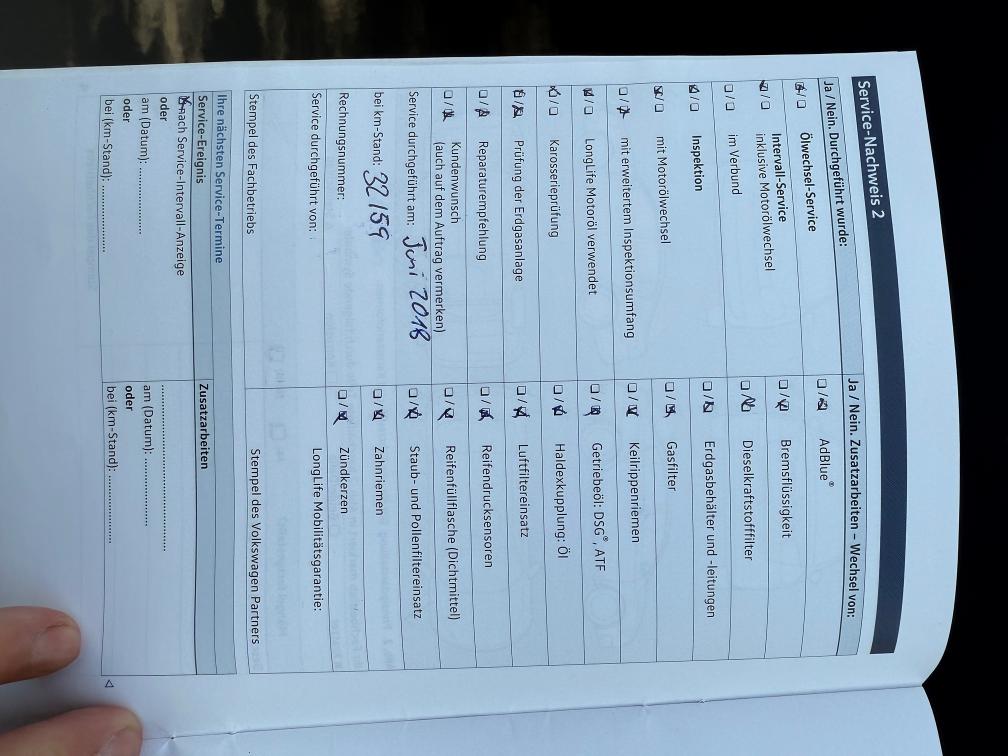 Service-Nachweis 2
Ja / Nein. Durchgeführt wurde:
Ölwechsel-Service
Intervall-Service
inklusive Motorölwechsel
im Verbund
Inspektion
mit Motorölwechsel
mit erweitertem Inspektionsumfang
LongLife Motoröl verwendet
Karosserieprüfung
Prüfung der Erdgasanlage
Reparaturempfehlung
Kundenwunsch
(auch auf dem Auftrag vermerken)
Service durchgeführt am: Juni 2018
bei km-Stand: 32159
Rechnungsnummer:
Service durchgeführt von:
Stempel des Fachbetriebs
Ja / Nein. Zusatzarbeiten – Wechsel von:
AdBlue®
Bremsflüssigkeit
Dieselkraftstofffilter
Erdgasbehälter und -leitungen
Gasfilter
Keilrippenriemen
Getriebeöl: DSG®, ATF
Haldexkupplung: Öl
Luftfiltereinsatz
Reifendrucksensoren
Reifenfüllflasche (Dichtmittel)
Staub- und Pollenfiltereinsatz
Zahnriemen
Zündkerzen
LongLife Mobilitätsgarantie:
Stempel des Volkswagen Partners
Ihre nächsten Service-Termine
Service-Ereignis
nach Service-Intervall-Anzeige
oder
am (Datum):
oder
bei (km-Stand):
Zusatzarbeiten
am (Datum):
oder
bei (km-Stand):